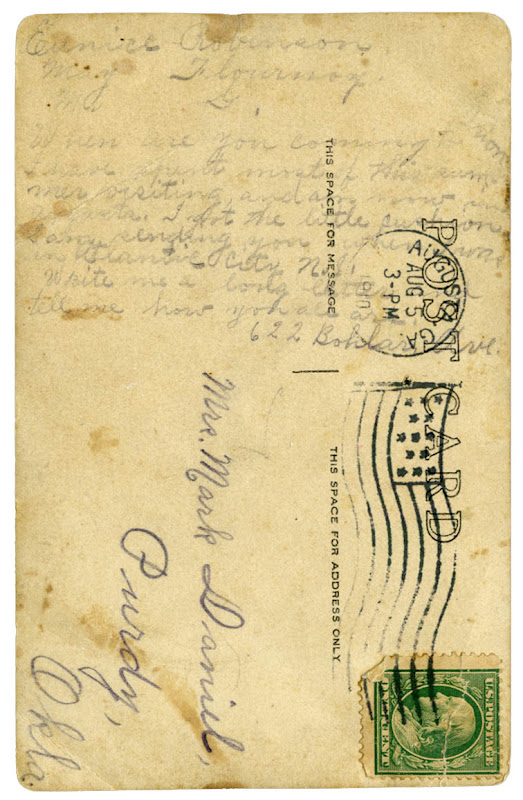 Eunice Robinson.
May Flournoy.
When are you coming to
I have spent most of this sum-
mer visiting, and am now in
Augusta. I got the little
I am sending you when I was
in Atlantic City N.J.
Write me a long letter and
tell me how you all are.
622 Ave.
THIS SPACE FOR MESSAGE
POST CARD
AUGUSTA
AUG 5
3-PM
1910
GA
THIS SPACE FOR ADDRESS ONLY
Mrs. Mark Daniel,
Purdy,
Okla.
U.S. POSTAGE